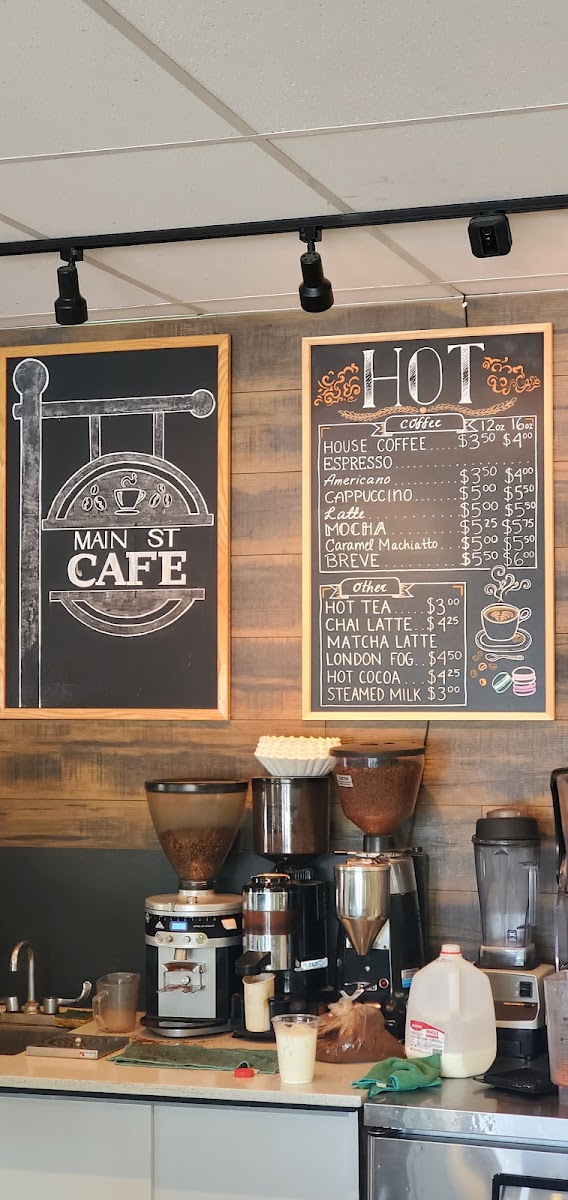 MAIN ST
CAFE
HOT
Coffee 12oz 16oz
HOUSE COFFEE.... $3.50 $4.00
ESPRESSO
Americano $3.50 $4.00
CAPPUCCINO $5.00 $5.50
Latte $5.00 $5.50
MOCHA $5.25 $5.75
Caramel Machiatto... $5.00 $5.50
BREVE $5.50 $6.00
Other
HOT TEA..... $3.00
CHAI LATTE... $4.25
MATCHA LATTE
LONDON FOG.. $4.50
HOT COCOA.... $4.25
STEAMED MILK $3.00
WHOLE